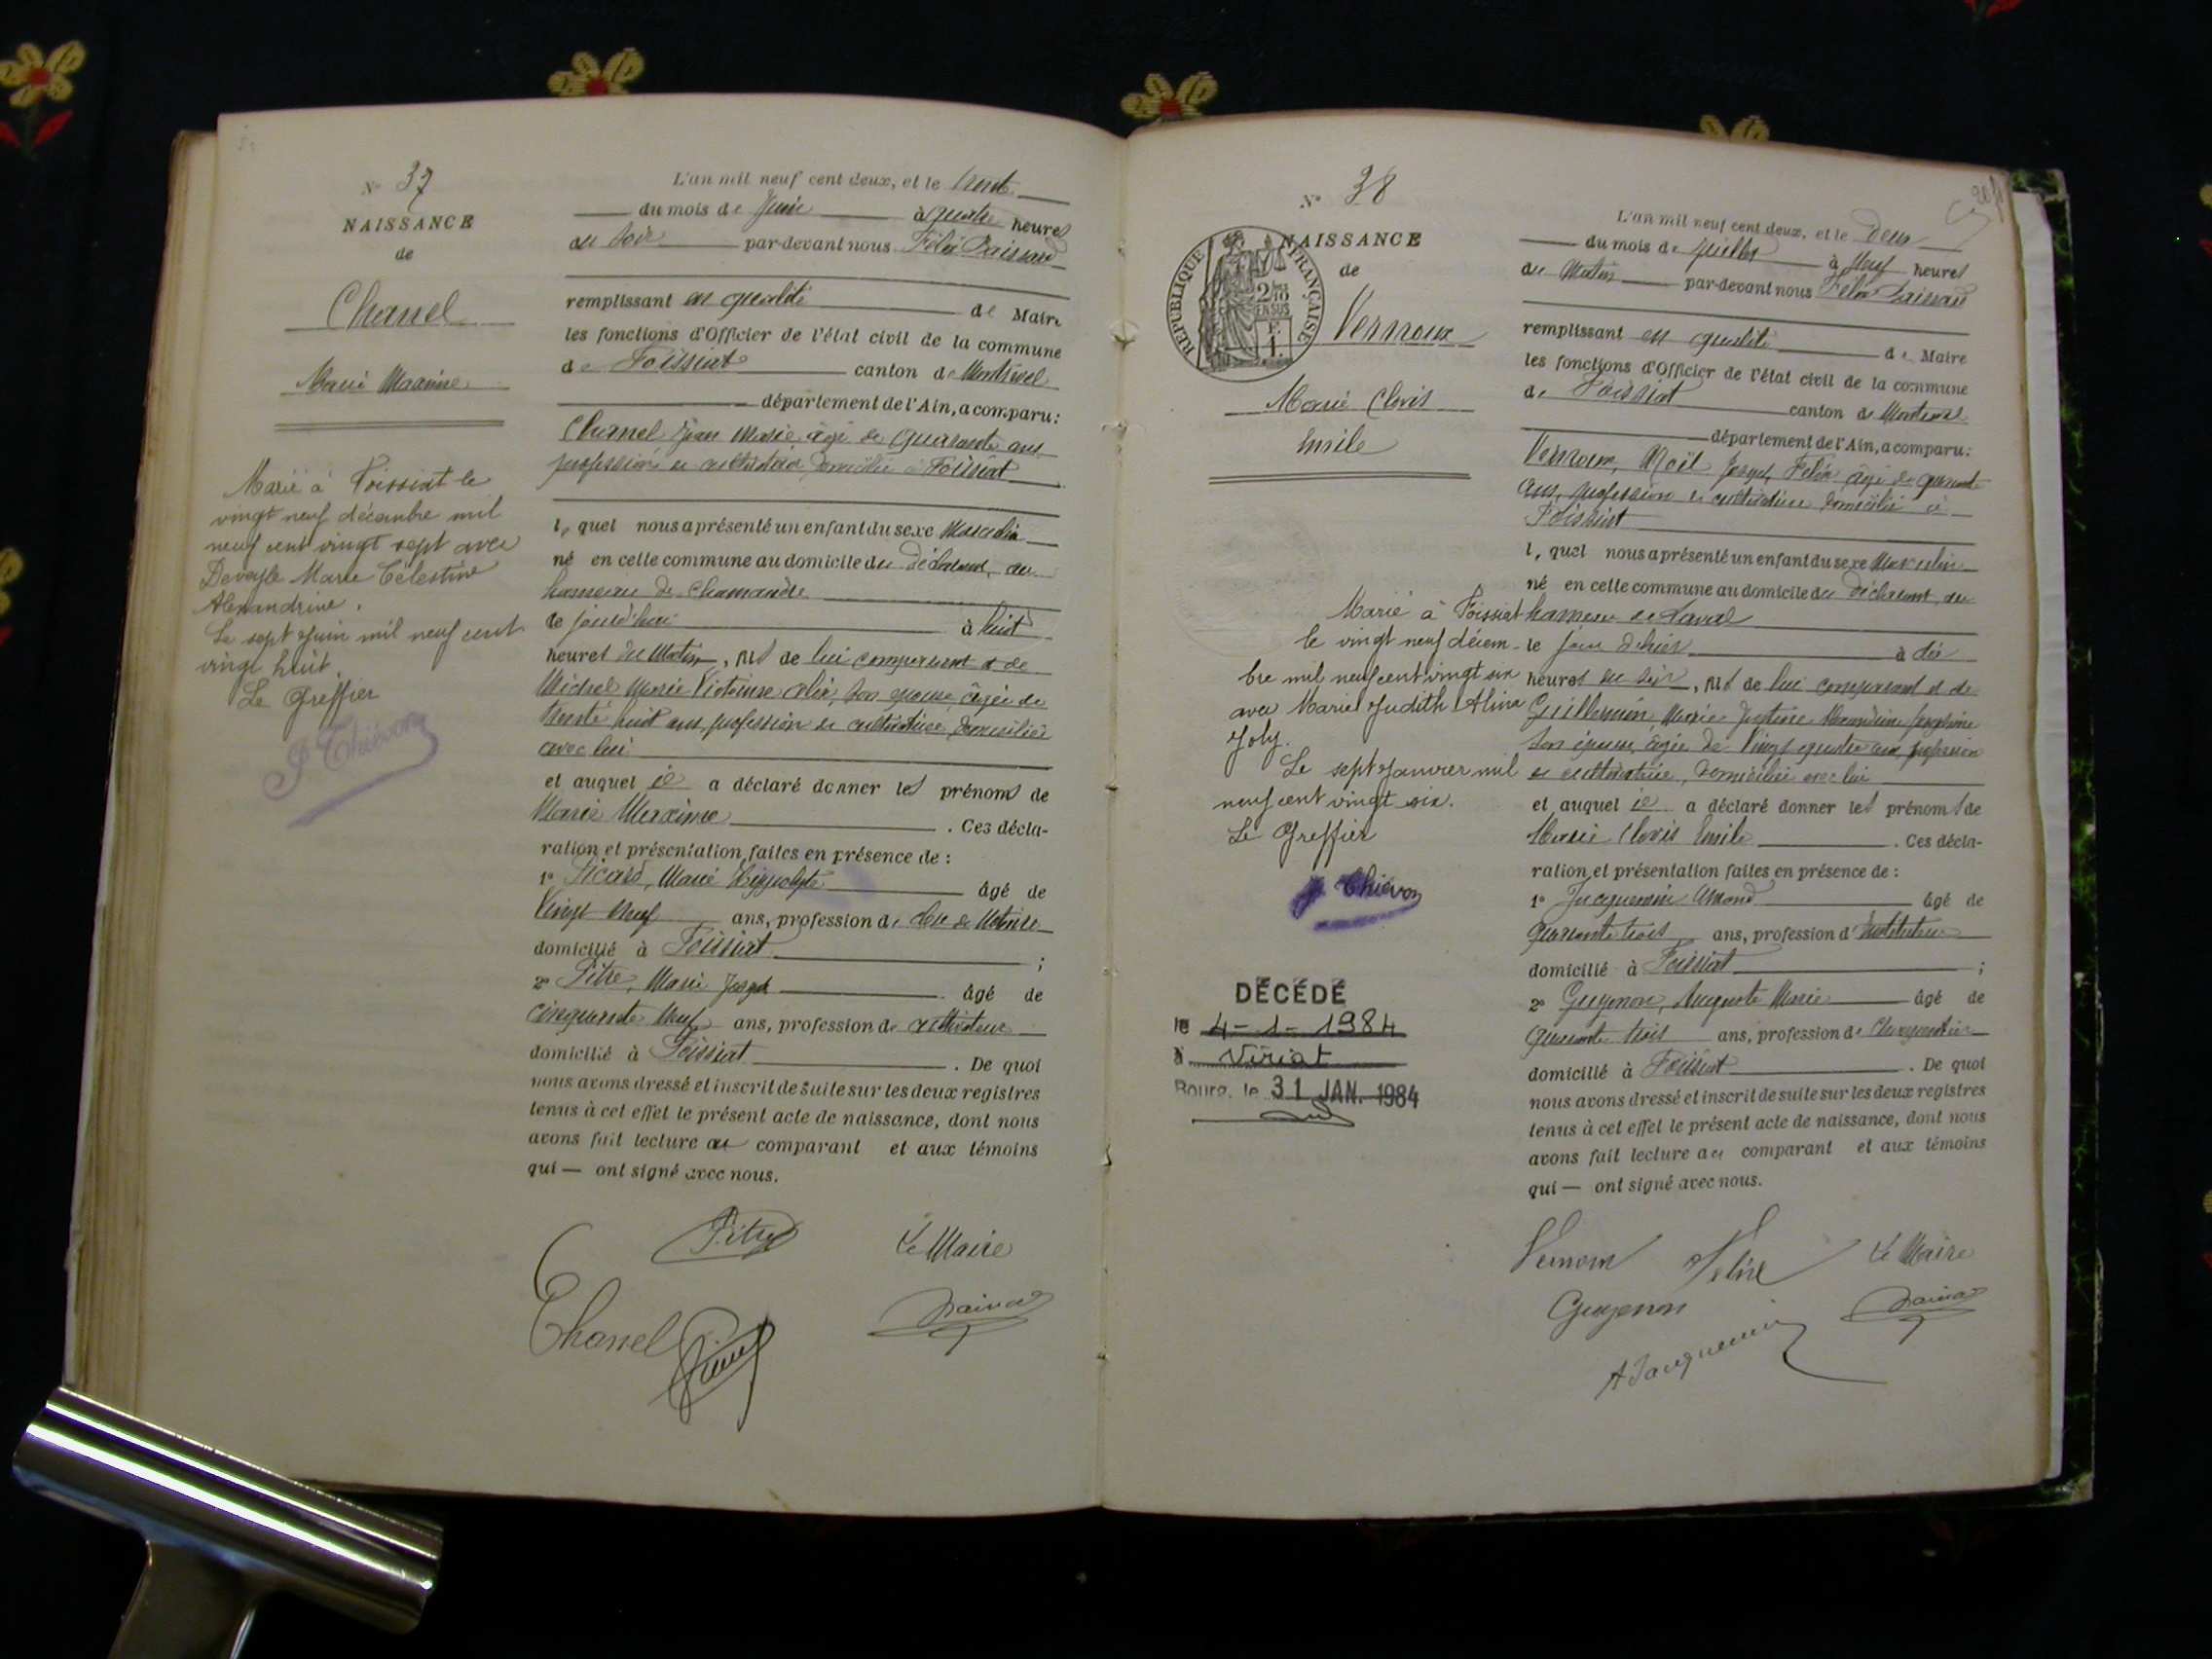 N° 37
NAISSANCE
de
Chanel
Marie Maxime
Marié à Foissiat le
vingt neuf décembre mil
neuf cent vingt sept avec
Deveyle Marie Célestine
Alexandrine.
Le sept Juin mil neuf cent
vingt huit.
Le Greffier
J. Thiévon
L'an mil neuf cent deux, et le trente
du mois de Juin à quatre heures
du soir par-devant nous Félix
remplissant en qualité de Maire
les fonctions d'Officier de l'état civil de la commune
de Foissiat canton de Montrevel
département de l'Ain, a comparu:
Chanel Jean Marie âgé de quarante ans
profession de cultivateur domicilié à Foissiat
lequel nous a présenté un enfant du sexe Masculin
né en cette commune au domicile du déclarant, au
hameau de Chamandre
le jourd'hui à huit
heures du Matin, fils de lui comparant et de
Michel Marie Victorine, son épouse, âgée de
trente huit ans, profession de cultivatrice, domiciliée
avec lui
et auquel il a déclaré donner les prénoms de
Marie Maxime. Ces décla-
ration et présentation faites en présence de :
1° Picard, Marie Hippolyte âgé de
Vingt Neuf ans, profession de clerc de Notaire
domicilié à Foissiat ;
2° Pitre, Marie Joseph âgé de
cinquante Neuf ans, profession de cultivateur
domicilié à Foissiat. De quoi
nous avons dressé et inscrit de suite sur les deux registres
tenus à cet effet le présent acte de naissance, dont nous
avons fait lecture au comparant et aux témoins
qui — ont signé avec nous.
Pitre Le Maire
Chanel
N° 38
NAISSANCE
de
RÉPUBLIQUE FRANÇAISE
2/10 EN SUS
F.
1.
Vernoux
Marie Clovis
Emile
Marié à Foissiat
le vingt neuf décem-
bre mil neuf cent vingt six
avec Marie Judith Alina
Joly.
Le sept Janvier mil
neuf cent vingt six.
Le Greffier
J. Thiévon
DÉCÉDÉ
le 4-1-1984
à Viriat
Bourg, le 31 JAN. 1984
L'an mil neuf cent deux, et le deux
du mois de Juillet à Neuf heures
du Matin par-devant nous Félix
remplissant en qualité de Maire
les fonctions d'Officier de l'état civil de la commune
de Foissiat canton de Montrevel
département de l'Ain, a comparu:
Vernoux, Noël Joseph, Félix âgé de quarante
ans, profession de cultivateur domicilié à
Foissiat
lequel nous a présenté un enfant du sexe Masculin
né en cette commune au domicile du déclarant, au
hameau de Laval
le jour d'hier à dix
heures du soir, fils de lui comparant et de
Guillemin Marie Justine Alexandrine Joséphine
son épouse, âgée de Vingt quatre ans, profession
de cultivatrice, domiciliée avec lui
et auquel il a déclaré donner les prénoms de
Marie Clovis Emile. Ces décla-
ration et présentation faites en présence de :
1° Jacquemin Amand âgé de
quarante trois ans, profession d'Instituteur
domicilié à Foissiat ;
2° Guyenon, Auguste Marie âgé de
quarante trois ans, profession de Charpentier
domicilié à Foissiat. De quoi
nous avons dressé et inscrit de suite sur les deux registres
tenus à cet effet le présent acte de naissance, dont nous
avons fait lecture au comparant et aux témoins
qui — ont signé avec nous.
Vernoux Félix Le Maire
Guyenon
A Jacquemin